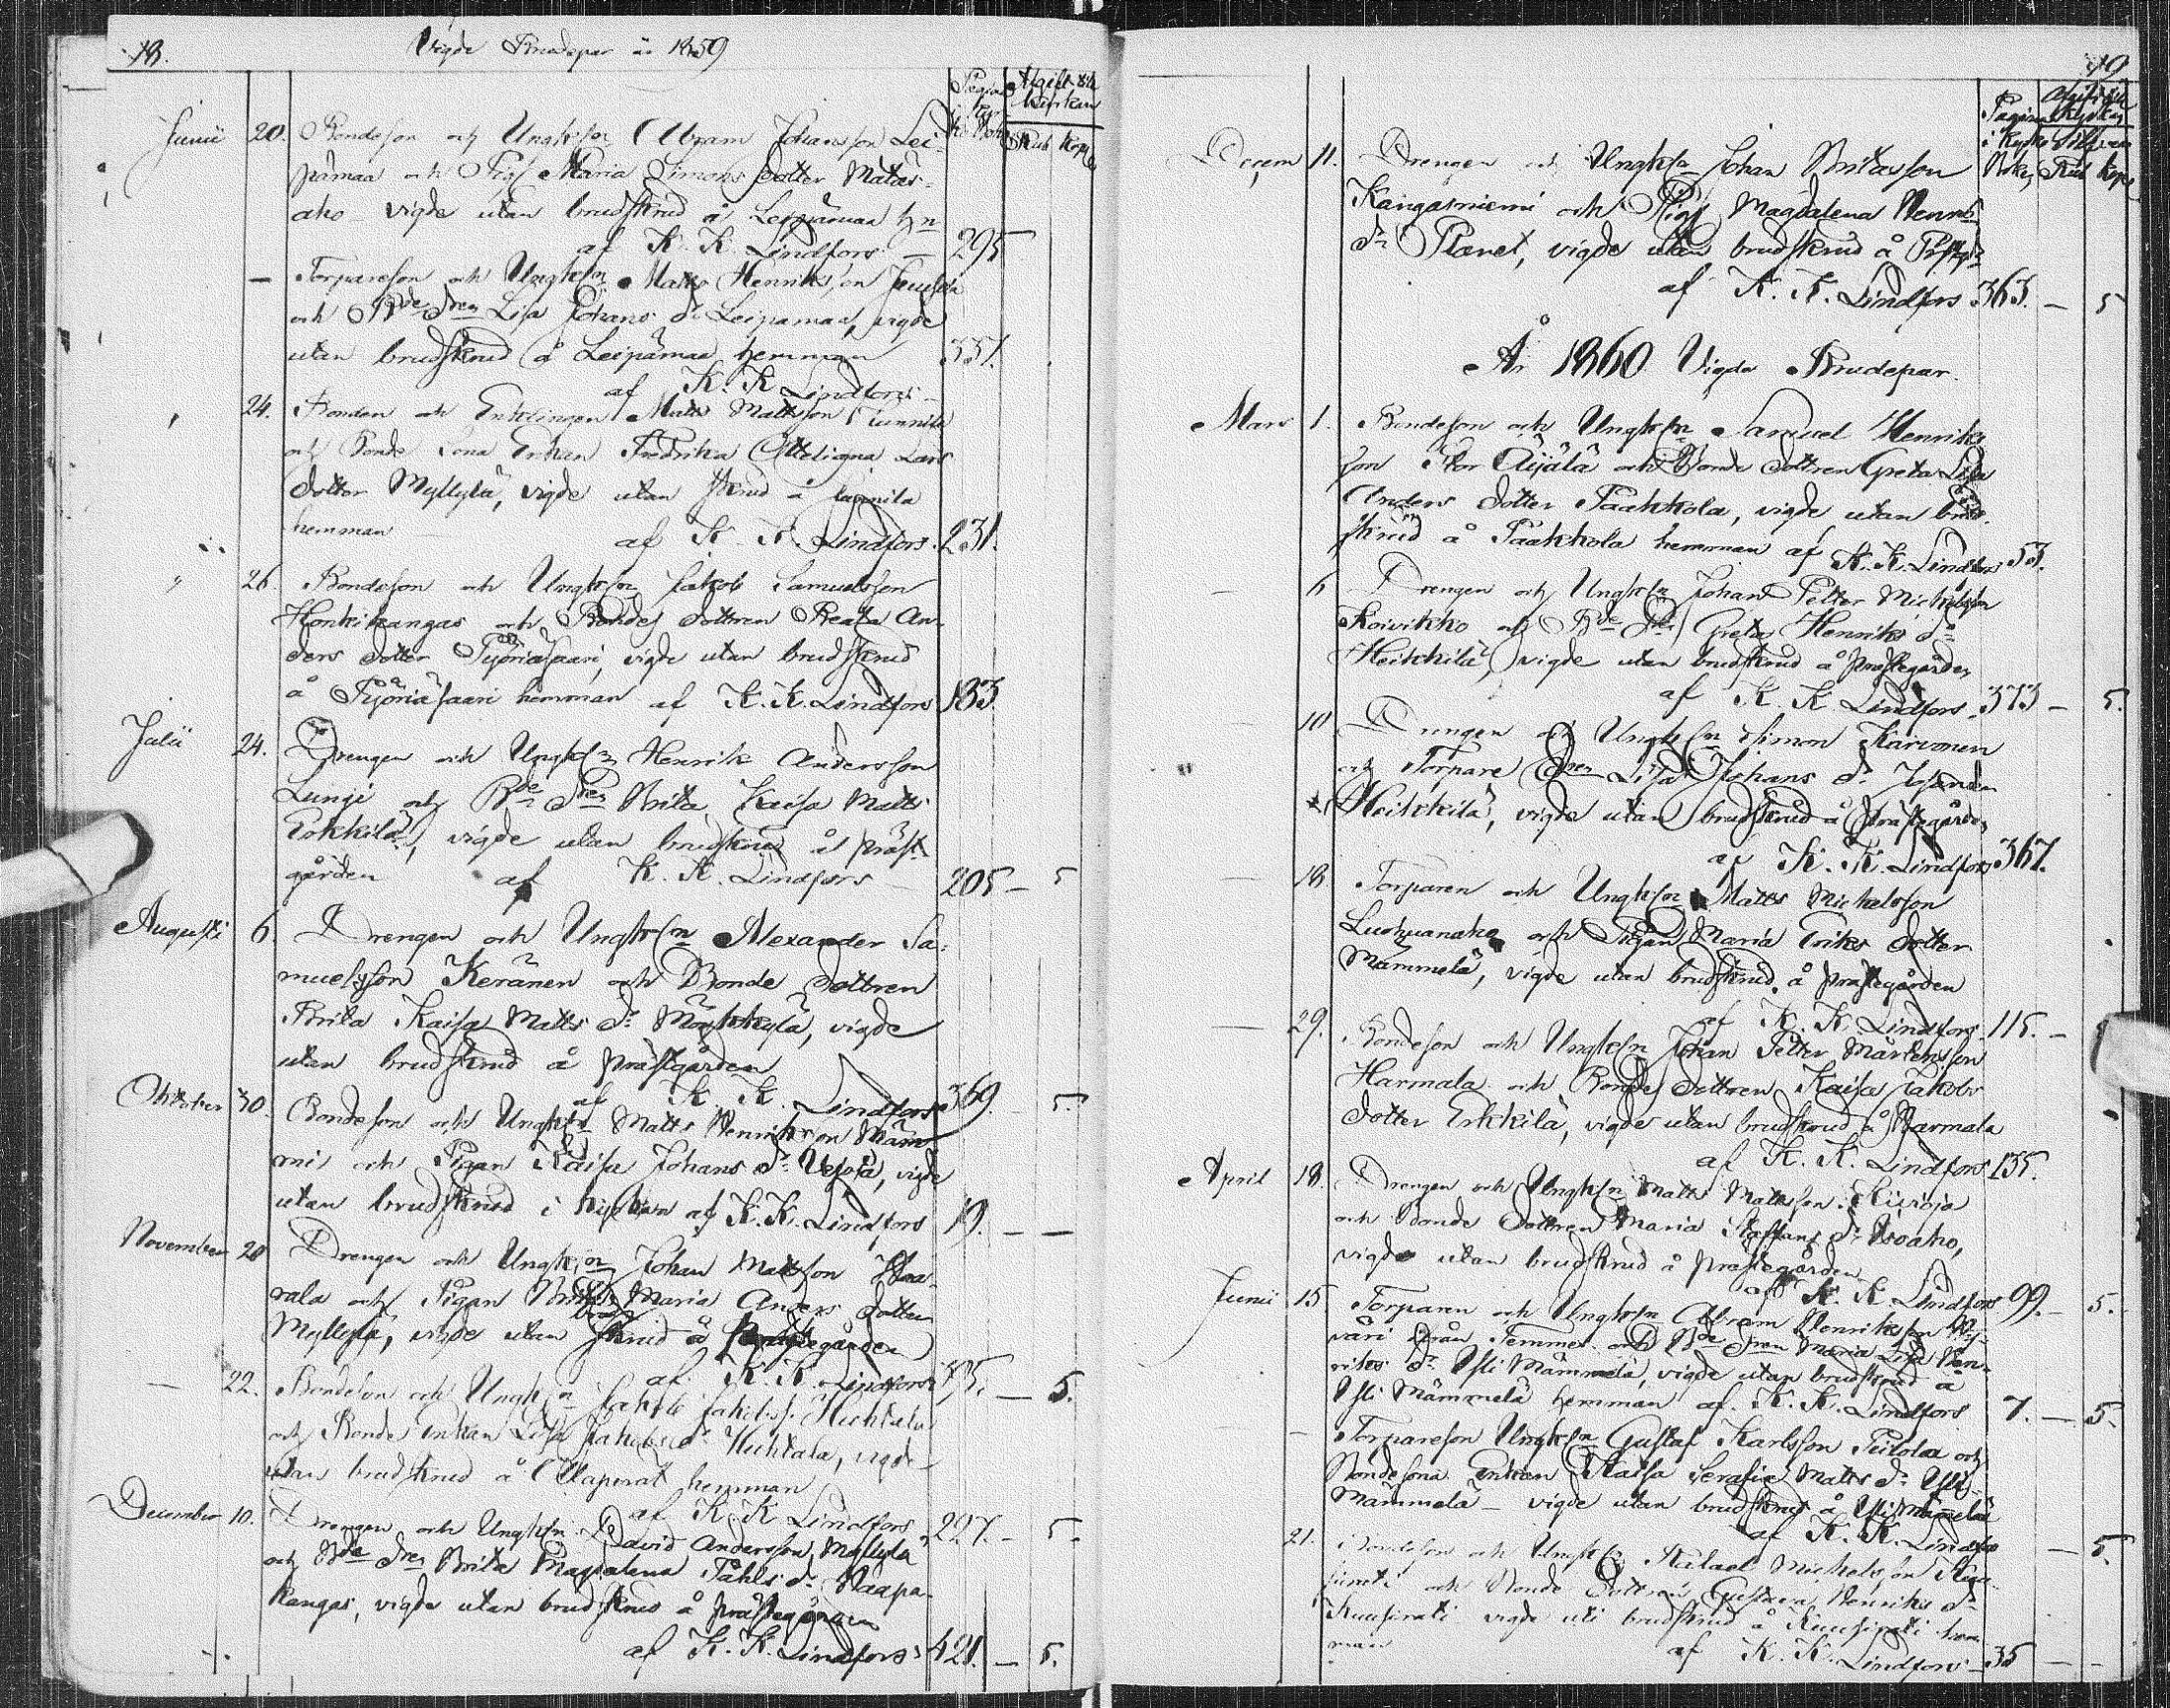 18.
Vigde Brudepar år 1859
Pagina i Kyrko Boken
Afgift till kyrkan
Rub Kop
Junii 20. Bondeson och Ungk:sn Abram Johansson Lei-
pämaa och Pig. Maria Simons dotter Matas-
aho vigde utan brudskrud å Leipämaa hn
af K. K. Lindfors — 295
— Torpareson och Ungk:sn Matts Henriksson
och Bde dren Lisa Johans dr Leipämaa, vigde
utan brudskrud å Leipämaa hemman 351.
af K. K. Lindfors
24. Bonden och Enklingen Matts Mattsson Tunnila
och Bonde sona Enkan Fredrika Lars
dotter Myllylä, vigde utan skrud å Tunnila
hemman af K. K. Lindfors. 231.
" 26 Bondeson och Ungk:sn Jakob Samuelsson
Honkikangas och Bonde dottren Beata An-
ders dotter Pyöriäsaari, vigde utan brudskrud
å Pyöriäsaari hemman af K. K. Lindfors 183
Julii 24. Drengen och Ungk:sn Henrik Andersson
Lungi och Bde dren Brita Kaisa Matts
Erkkilä, vigde utan brudskrud å präst-
gården af K. K. Lindfors — 205 — 5
Augusti 6. Drengen och Ungk:sn Alexander Sa-
muelsson Keränen och Bonde dottren
Brita Kaisa Matts dr Mönkkylä, vigde
utan brudskrud å prästgården
af K. K. Lindfors 369. 5.
Oktober 30. Bondeson och Ungk:sn Matts Henriksson Mäm-
mi och Pigan Kaisa Johans dr, vigde
utan brudskrud i kyrkan af K. K. Lindfors 19. — —
November 20 Drengen och Ungk:sn Johan Mattsson
rala och Pigan Brita Maria Anders dotter
Myllylä, vigde utan brudskrud å prästegården
af K. K. Lindfors — 5.
— 22. Bondeson och Ungk:sn Jakob Jakobss. Huhtala
och Bonde Enkan Lisa Jakobs dr Huhtala, vigde
utan brudskrud å Alaperät hemman
af K. K. Lindfors 227. — 5.
December 10. Drengen och Ungk:sn David Andersson Myllylä
och Bde dren Brita Magdalena Påhls dr Haapa-
kangas, vigde utan brudskrud å prästegården
af K. K. Lindfors 421. — 5.
19
Pagina i Kyrko Boken
Rub Kope
Decem 11. Drengen och Ungk:sn Johan Britasson
Kangasniemi och Pig. Magdalena Henriks
dr Planet, vigde utan brudskrud å
af K. K. Lindfors 363. — 5
År 1860 Vigde Brudepar.
Mars 1. Bondeson och Ungk:sn Samuel Henriks
son Stor Äijälä och Bonde dottren Greta Lisa
Anders dotter Paakkola, vigde utan brud-
skrud å Paakkola hemman af K. K. Lindfors 53.
— 6 Drengen och Ungk:sn Johan Petter Michelsson
Koivikko och Bde dr Greta Henriks dr
Heikkilä, vigde utan brudskrud å prästegården
af K. K. Lindfors. 373 — 5.
10 Drengen och Ungk:sn Simon Karvonen
och Torpare dren Lisa Johans dr
Heikkilä, vigde utan brudskrud å prästegården
af K. K. Lindfors 367.
— 18 Torparen och Ungk:sn Matts Michelsson
och Pigan Maria Eriks dotter
Mämmelä, vigde utan brudskrud å prästegården
af K. K. Lindfors. 115. —
— 29. Bondeson och Ungk:sn Johan Petter Mårtensson
Harmala och Bonde dottren Kaisa Jakobs
dotter Erkkilä, vigde utan brudskrud å Harmala
af K. K. Lindfors 135.
April 18. Drengen och Ungk:sn Matts Mattsson Kivioja
och Bonde dottren Maria Staffans dr Isoaho,
vigde utan brudskrud å prästegården
af K. K. Lindfors 99. — 5.
Junii 15 Torparen och Ungk:sn Abram Henriksson
från Temmes och Bde dren Maria Lisa Hen-
riks dr Yli Mämmelä, vigde utan brudskrud å
Yli Mämmelä hemman af K. K. Lindfors 7. — 5.
— Torpareson Ungk:sn Gustaf Karlsson Peitola och
Bondesona Enkan Kaisa Serafia Matts dr Yli
Mämmelä — vigde utan brudskrud å Yli Mämmelä
af K. K. Lindfors — 5.
21. Bondeson och Ungk:sn Michelsson
och Bonde dottren Gustava Henriks dr
Kuusirati vigde uti brudskrud å Kuusirati hem-
man af K. K. Lindfors — 35 — —